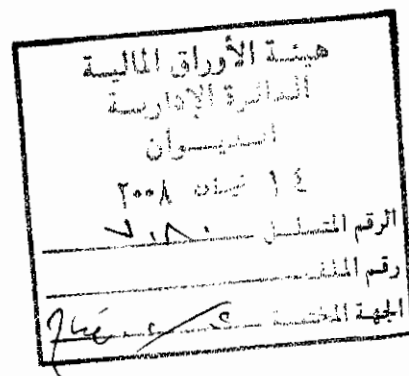 هيئة الأوراق المالية
الدائرة الإدارية
الديوان
١٤ نيسان ٢٠٠٨
الرقم المتسلسل
رقم الملف
الجهة المختصة